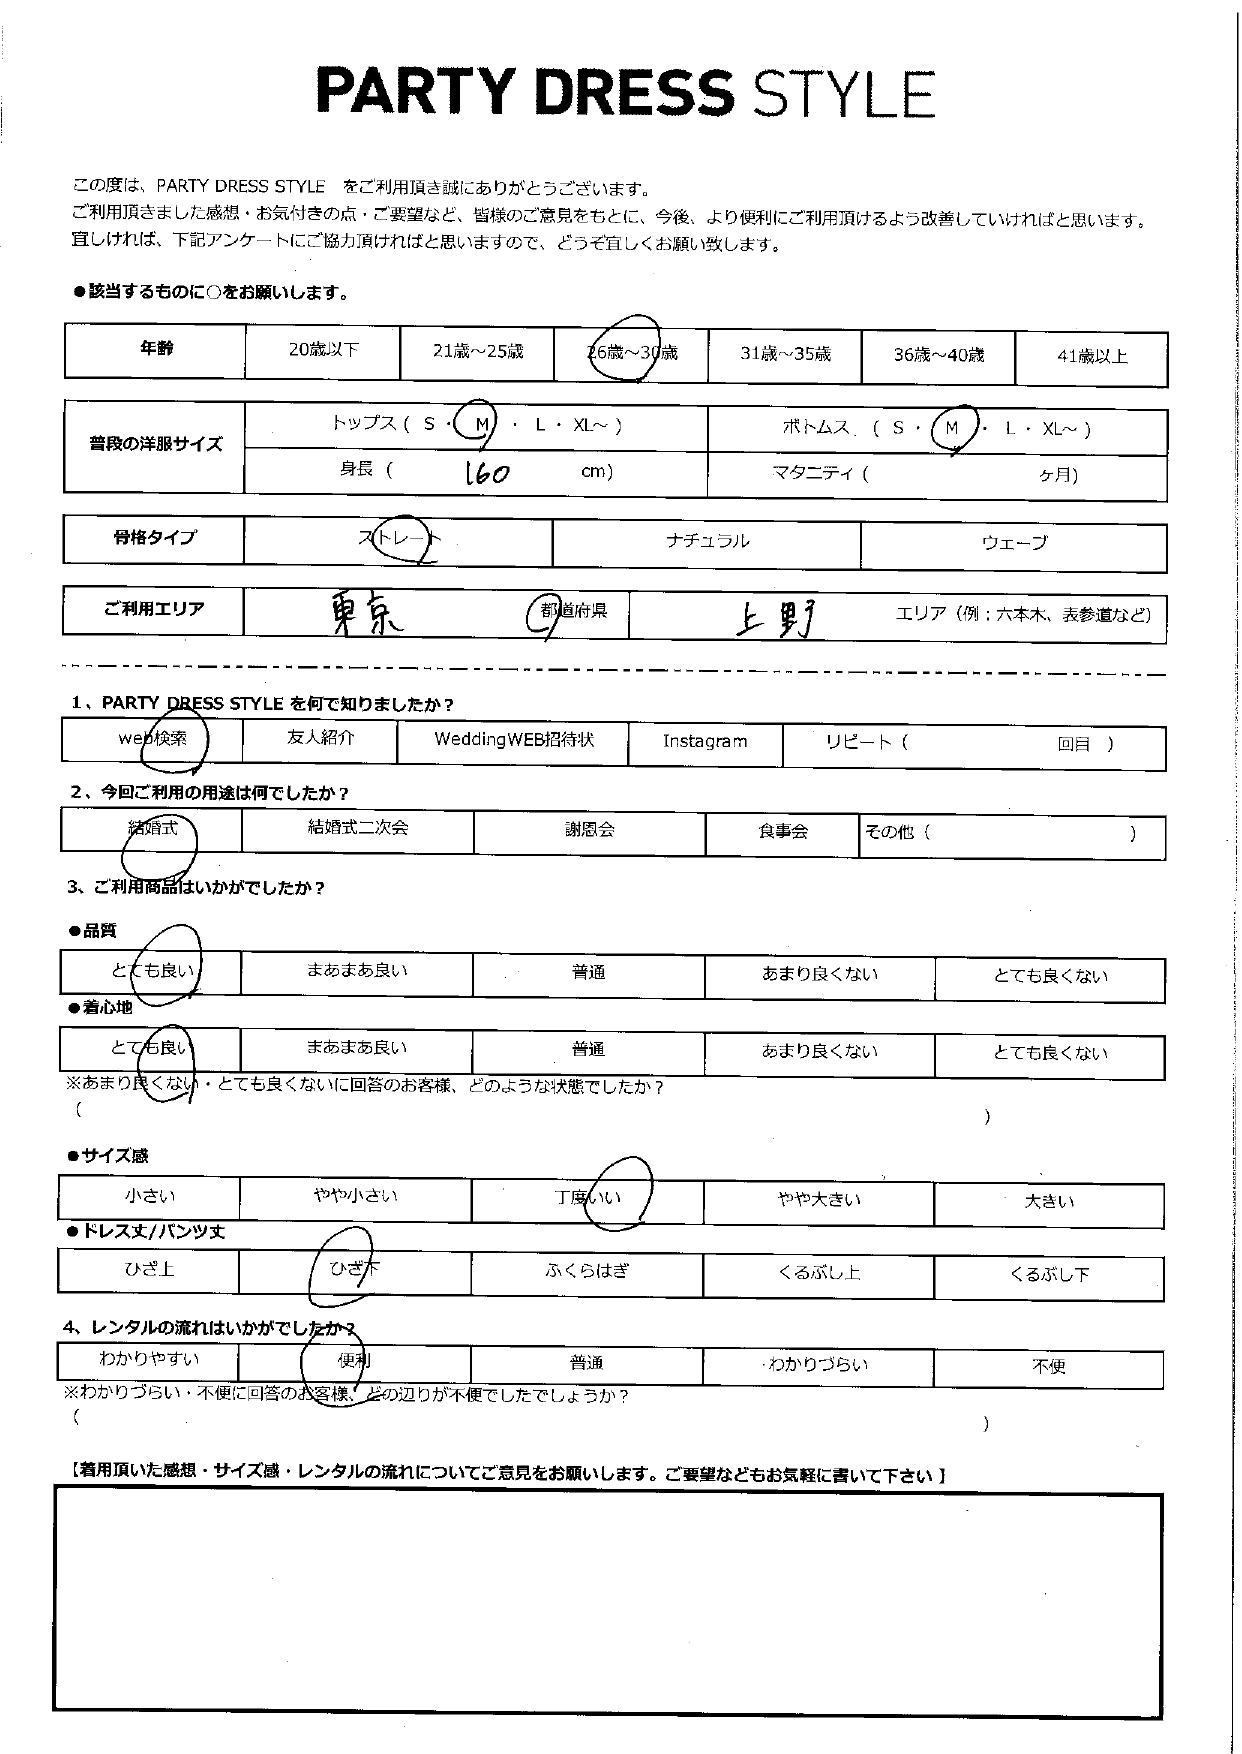 PARTY DRESS STYLE
この度は、PARTY DRESS STYLE　をご利用頂き誠にありがとうございます。
ご利用頂きました感想・お気付きの点・ご要望など、皆様のご意見をもとに、今後、より便利にご利用頂けるよう改善していければと思います。
宜しければ、下記アンケートにご協力頂ければと思いますので、どうぞ宜しくお願い致します。
●該当するものに○をお願いします。
年齢 20歳以下 21歳～25歳 26歳～30歳 31歳～35歳 36歳～40歳 41歳以上
普段の洋服サイズ トップス ( S ・ M ・ L ・ XL～ ) ボトムス ( S ・ M ・ L ・ XL～ )
身長 ( 160 cm) マタニティ ( ヶ月)
骨格タイプ ストレート ナチュラル ウェーブ
ご利用エリア 東京 都道府県 上野 エリア（例：六本木、表参道など）
1、PARTY DRESS STYLE を何で知りましたか？
web検索 友人紹介 WeddingWEB招待状 Instagram リピート ( 回目 )
2、今回ご利用の用途は何でしたか？
結婚式 結婚式二次会 謝恩会 食事会 その他 ( )
3、ご利用商品はいかがでしたか？
●品質
とても良い まあまあ良い 普通 あまり良くない とても良くない
●着心地
とても良い まあまあ良い 普通 あまり良くない とても良くない
※あまり良くない・とても良くないに回答のお客様、どのような状態でしたか？
( )
●サイズ感
小さい やや小さい 丁度いい やや大きい 大きい
●ドレス丈/パンツ丈
ひざ上 ひざ下 ふくらはぎ くるぶし上 くるぶし下
4、レンタルの流れはいかがでしたか？
わかりやすい 便利 普通 わかりづらい 不便
※わかりづらい・不便に回答のお客様、どの辺りが不便でしたでしょうか？
( )
【着用頂いた感想・サイズ感・レンタルの流れについてご意見をお願いします。ご要望などもお気軽に書いて下さい 】